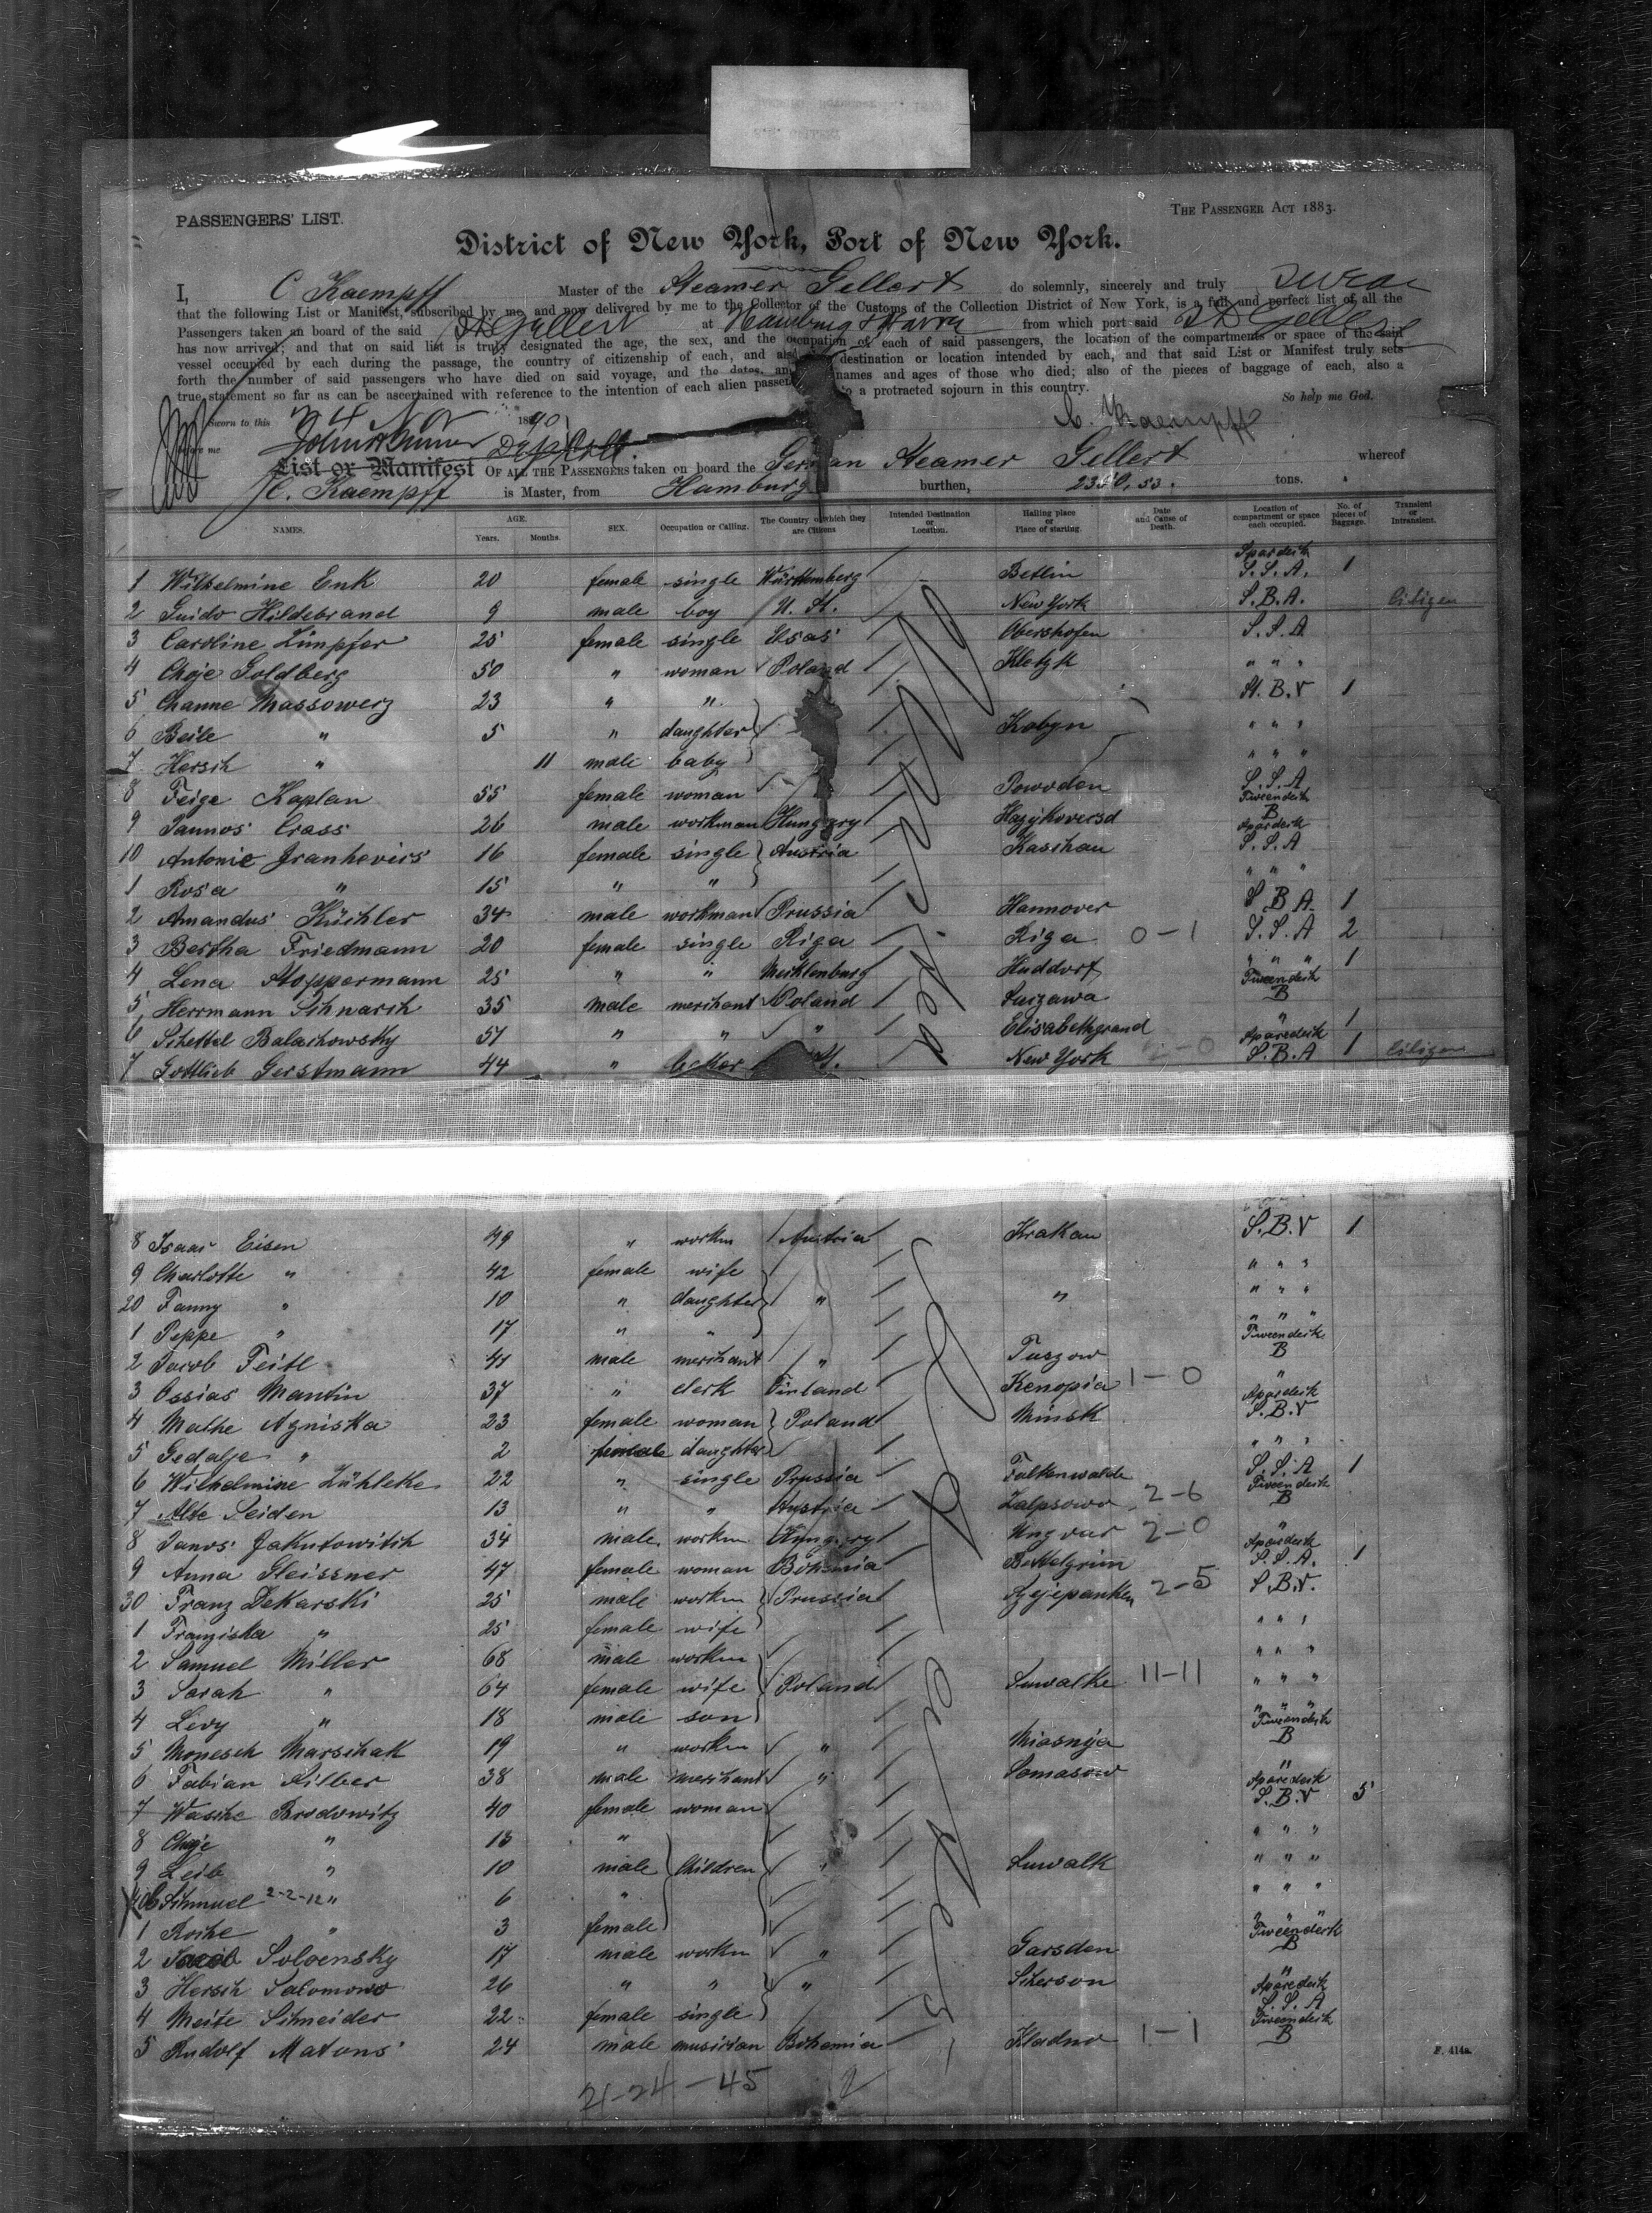 PASSENGERS' LIST.
THE PASSENGER ACT 1883.
District of New York, Port of New York.
I, C Kaempff Master of the Steamer Gellert do solemnly, sincerely and truly swear
that the following List or Manifest, subscribed by me, and now delivered by me to the Collector of the Customs of the Collection District of New York, is a full and perfect list of all the
Passengers taken on board of the said Gellert at Hamburg & Havre from which port said Gellert
has now arrived; and that on said list is truly designated the age, the sex, and the occupation of each of said passengers, the location of the compartments or space of the said
vessel occupied by each during the passage, the country of citizenship of each, and also destination or location intended by each, and that said List or Manifest truly sets
forth the number of said passengers who have died on said voyage, and the dates, an names and ages of those who died; also of the pieces of baggage of each, also a
true statement so far as can be ascertained with reference to the intention of each alien passen to a protracted sojourn in this country. So help me God.
Sworn to this 24 Nov 1890 C. Kaempff
me
List or Manifest OF ALL THE PASSENGERS taken on board the German Steamer Gellert whereof
C. Kaempff is Master, from Hamburg burthen, tons.
NAMES. AGE. Years. Months. SEX. Occupation or Calling. The Country of which they are Citizens Intended Destination or Location. Hailing place or Place of starting. Date and Cause of Death. Location of compartment or space each occupied. No. of pieces of Baggage. Transient or Intransient.
1 Wilhelmine Enk 20 female single Württemberg Betlin Spardeck S.S.A. 1
2 Guido Hildebrand 9 male boy U. St. New York S.B.A.
3 Caroline Limpfer 25 female single Elsas Obershofen S.S.A
4 Choje Goldberg 50 " woman Poland Kletzk " " "
5 Channe Massowerz 23 " " St. B.V 1
6 Beile " 5 " daughter Kobyn " " "
7 Hersch " 11 male baby " " "
8 Feige Kaplan 55 female woman Powoden S.S.A
9 Jannos Crass 26 male workman Hungary Hajykoversd Tweendeck B
10 Antonie Grankovics 16 female single Austria Kaschau Spardeck S.S.A
1 Rosa " 15 " " " " "
2 Amandus Küchler 34 male workman Prussia Hannover S.B.A. 1
3 Bertha Friedmann 20 female single Riga Riga 0-1 S.S.A 2
4 Lena Stoppermann 25 " " Mecklenburg Huddorf " " " 1
5 Herrmann Schnarch 35 male merchant Poland Suczawa Tweendeck B
6 Schettel Balachowsky 51 " " " Elisabethgrand " 1
7 Gottlieb Gerstmann 44 " St. New York 2-0 Sparedeck S.B.A 1
8 Isaac Eisen 49 " workm Austria Krakau S.B.V 1
9 Charlotte " 42 female wife " " "
20 Fanny " 10 " daughter " " " " "
1 Peppe " 17 " " " " "
2 Jacob Feitl 41 male merchant " Tuszow Tweendeck B
3 Ossias Mantin 37 " clerk Finland Kenopia 1-0 "
4 Malhe Agniska 23 female woman Poland Minsk Spardeck S.B.V
5 Gedalje " 2 female daughter " " "
6 Wilhelmine Zühlke 22 " single Prussia Falkenwalde S.S.A 1
7 Alte Seiden 13 " " Austria Zalpsowo 2-6 Tweendeck B
8 Janos Jakutowitch 34 male workm Hungary Ungvar 2-0 "
9 Anna Gleissner 47 female woman Bohemia Bettelgrün Spardeck S.S.A. 1
30 Franz Dekarski 25 male workm Prussia Szejepanken 2-5 S.B.V.
1 Franziska " 25 female wife " " "
2 Samuel Miller 68 male workm " " "
3 Sarah " 64 female wife Poland Suwalke 11-11 " " "
4 Levy " 18 male son " " "
5 Monesch Marschak 19 " workm " Miasnja Tweendeck B
6 Fabian Silber 38 male merchant " Somasow "
7 Wasche Brodowitz 40 female woman Sparedeck S.B.V 5
8 Chaje " 13 " " " "
9 Leib " 10 male Children " Suwalk " " "
40 Schmuel 2-2-12 " 6 " " " "
1 Roche " 3 female " " "
2 Jacob Soloensky 17 male workm " Garsden Tweendeck B
3 Hersch Salomowo 26 " " " Scherson "
4 Meite Schneider 22 female single Sparedeck S.S.A
5 Rudolf Matous 24 male musician Bohemia Kladno 1-1 Tweendeck B
F. 414a.
21-24-45